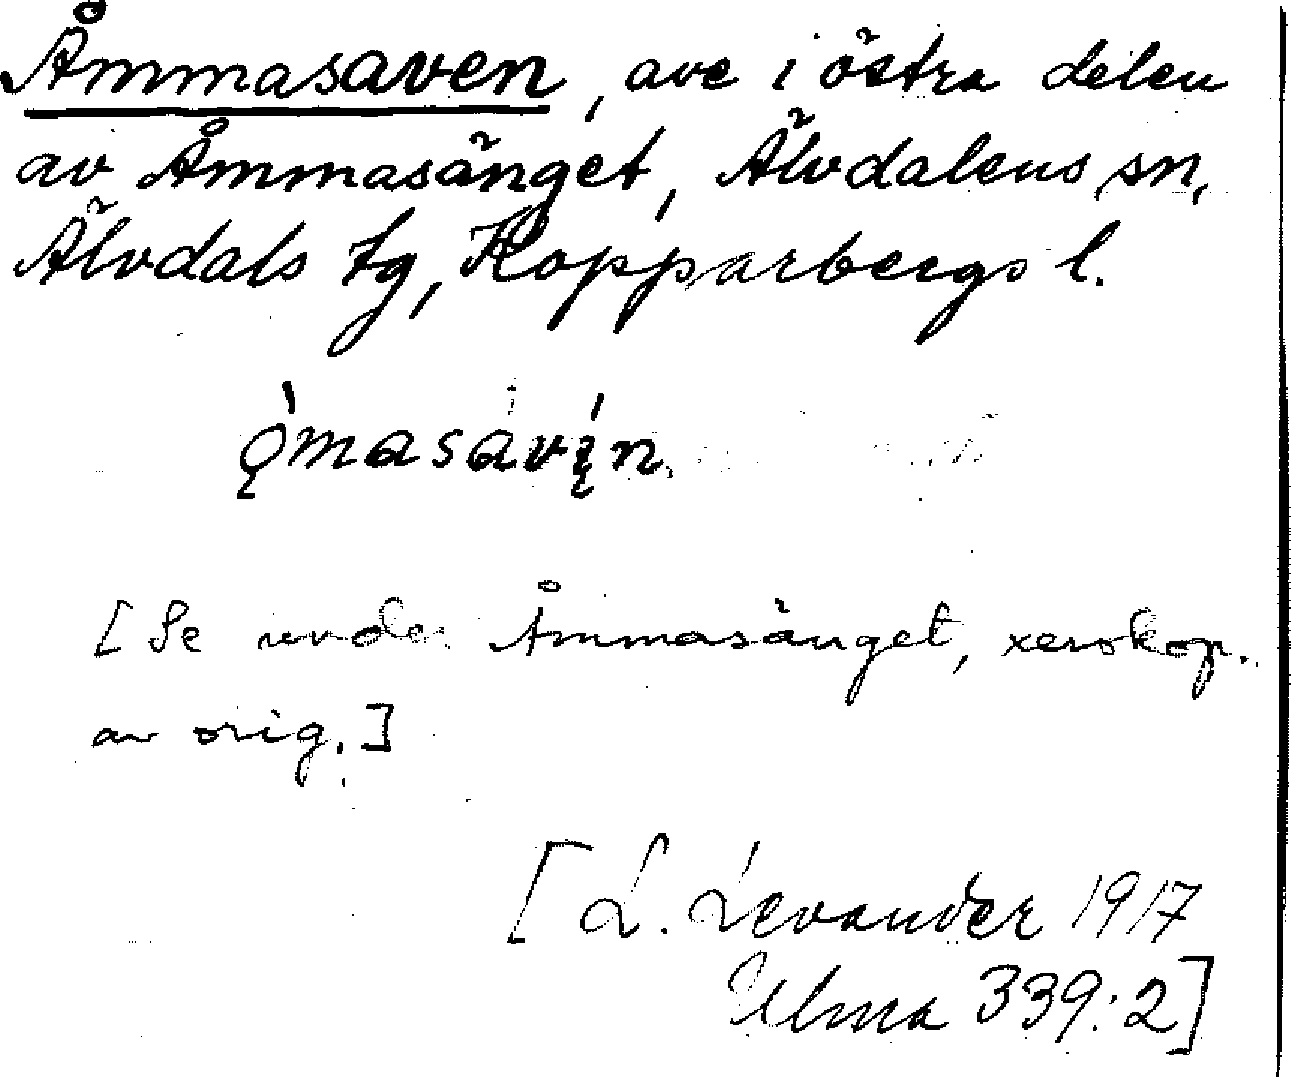 Åmmasaven, ave i östra delen
av Åmmasänget, Älvdalens sn,
Älvdals tg, Kopparbergs l.
ǫ́masàvı̨́n
[Se under Åmmasänget, xerokop.
av orig.]
[L. Levander 1917
Ulma 339:2]